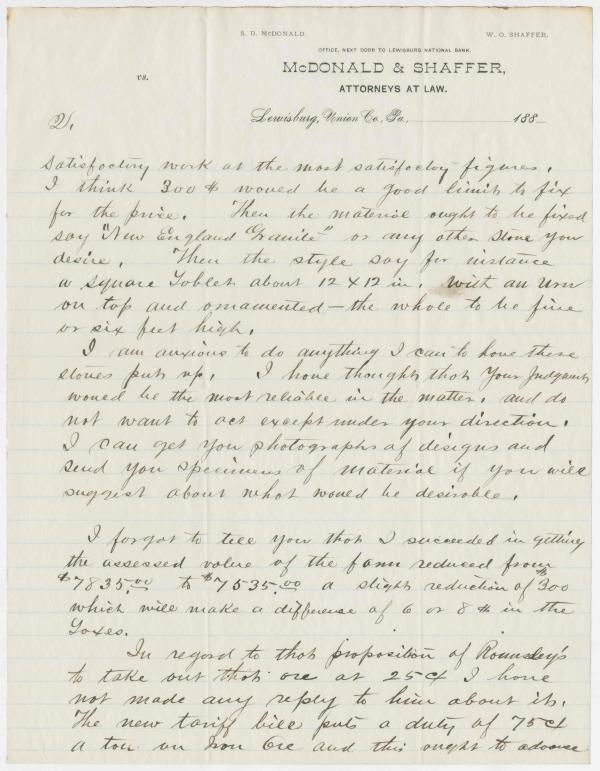 S. D. McDONALD. W. O. SHAFFER.
OFFICE, NEXT DOOR TO LEWISBURG NATIONAL BANK.
vs.
McDONALD & SHAFFER,
ATTORNEYS AT LAW.
2/. Lewisburg, Union Co., Pa. 188
satisfactory work at the most satisfactory figures.
I think 300 $ would be a good limit to fix
for the price. Then the material ought to be fixed
say "New England Granite" or any other stone you
desire. Then the style say for instance
a square Toblet about 12 x 12 in. with an urn
on top and ornamented — the whole to be five
or six feet high.
I am anxious to do anything I can to have these
stones put up. I have thought that your Judgment
would be the most reliable in the matter. and do
not want to act except under your direction.
I can get you photographs of designs and
send you specimens of material if you will
suggest about what would be desirable.
I forgot to tell you that I succeeded in getting
the assessed value of the farm reduced from
$7835.00 to $7535.00 a slight reduction of $300
which will make a difference of 6 or 8 $ in the
Taxes.
In regard to that proposition of
to take out that ore at 25 ¢ I have
not made any reply to him about it.
The new tariff bill puts a duty of 75 ¢
a ton on Iron Ore and this ought to advance